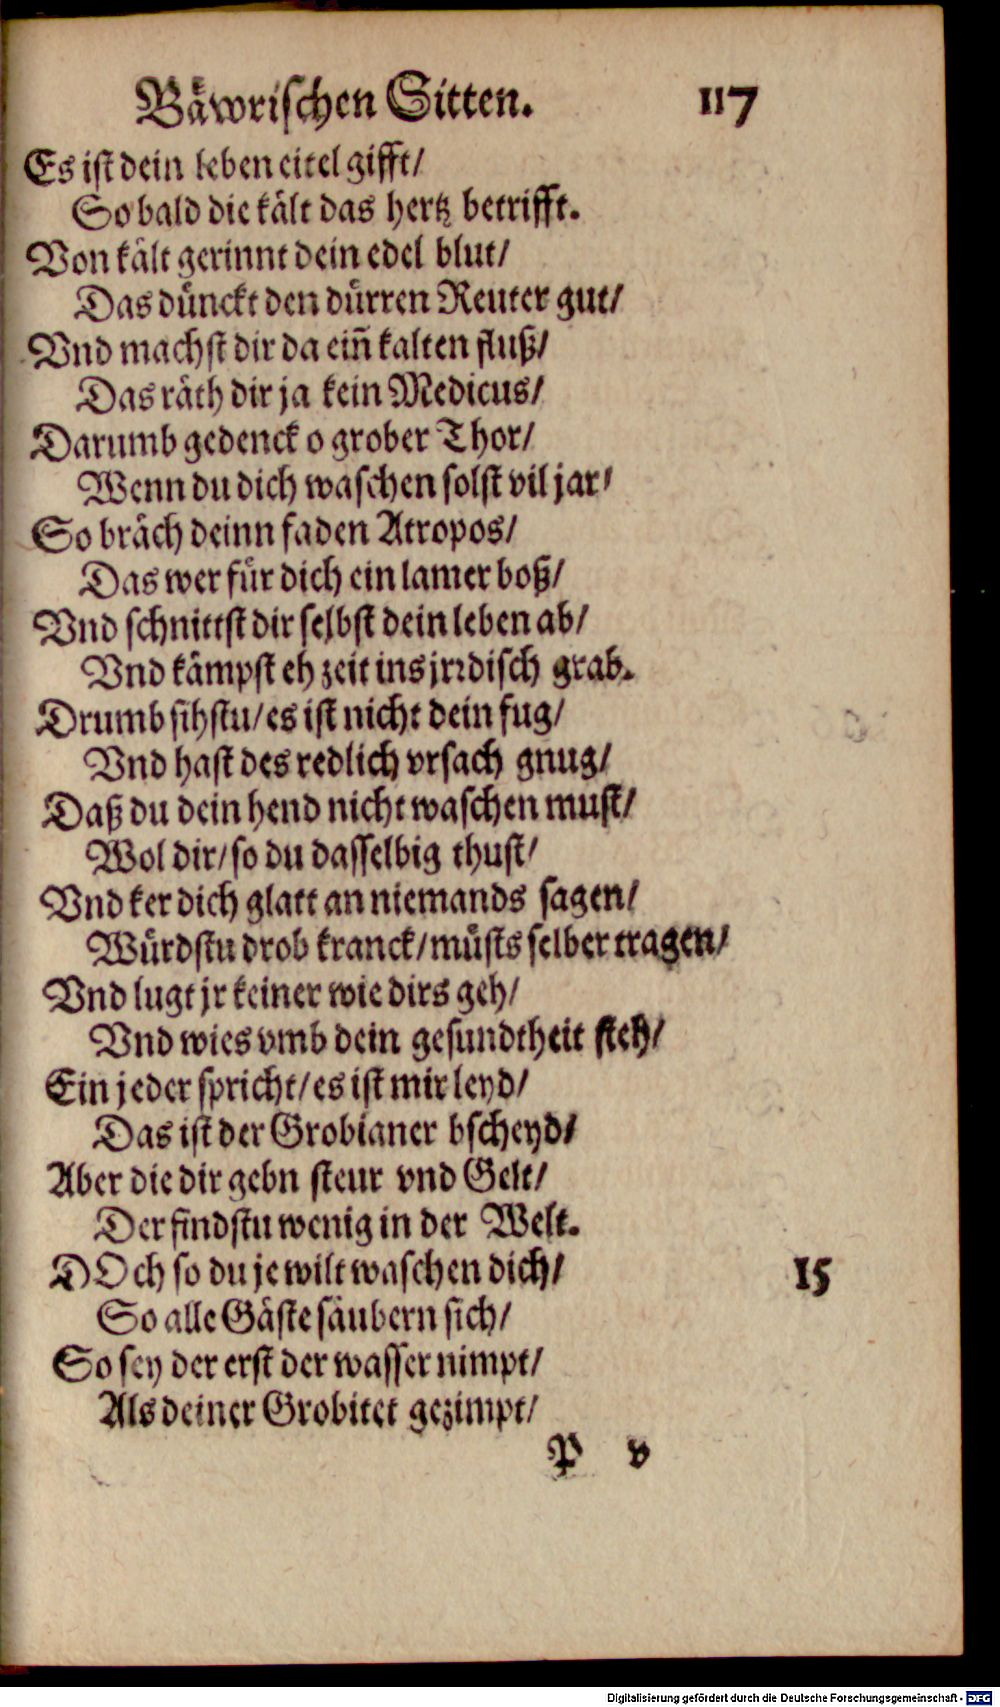 Bäwrischen Sitten. 117
Es ist dein leben eitel gifft/
So bald die kält das hertz betrifft.
Von kält gerinnt dein edel blut/
Das dünckt den dürren Reuter gut/
Vnd machst dir da eiñ kalten fluß/
Das räth dir ja kein Medicus/
Darumb gedenck o grober Thor/
Wenn du dich waschen solst vil jar/
So bräch deinn faden Atropos/
Das wer für dich ein lamer boß/
Vnd schnittst dir selbst dein leben ab/
Vnd kämpst eh zeit ins jrrdisch grab.
Drumb sihstu/es ist nicht dein fug/
Vnd hast des redlich vrsach gnug/
Daß du dein hend nicht waschen must/
Wol dir/so du dasselbig thust/
Vnd ker dich glatt an niemands sagen/
Würdstu drob kranck/müsts selber tragen/
Vnd lugt jr keiner wie dirs geh/
Vnd wies vmb dein gesundtheit steh/
Ein jeder spricht/es ist mir leyd/
Das ist der Grobianer bscheyd/
Aber die dir gebn steur vnd Gelt/
Der findstu wenig in der Welt.
DOch so du je wilt waschen dich/ 15
So alle Gäste säubern sich/
So sey der erst der wasser nimpt/
Als deiner Grobitet gezimpt/
P v
Digitalisierung gefördert durch die Deutsche Forschungsgemeinschaft - DFG